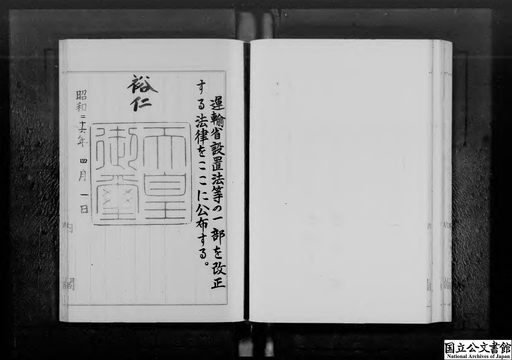 運輸省設置法等の一部を改正
する法律をここに公布する。
裕仁
天皇
御璽
昭和二十六年 四月 一日
内閣
国立公文書館
National Archives of Japan